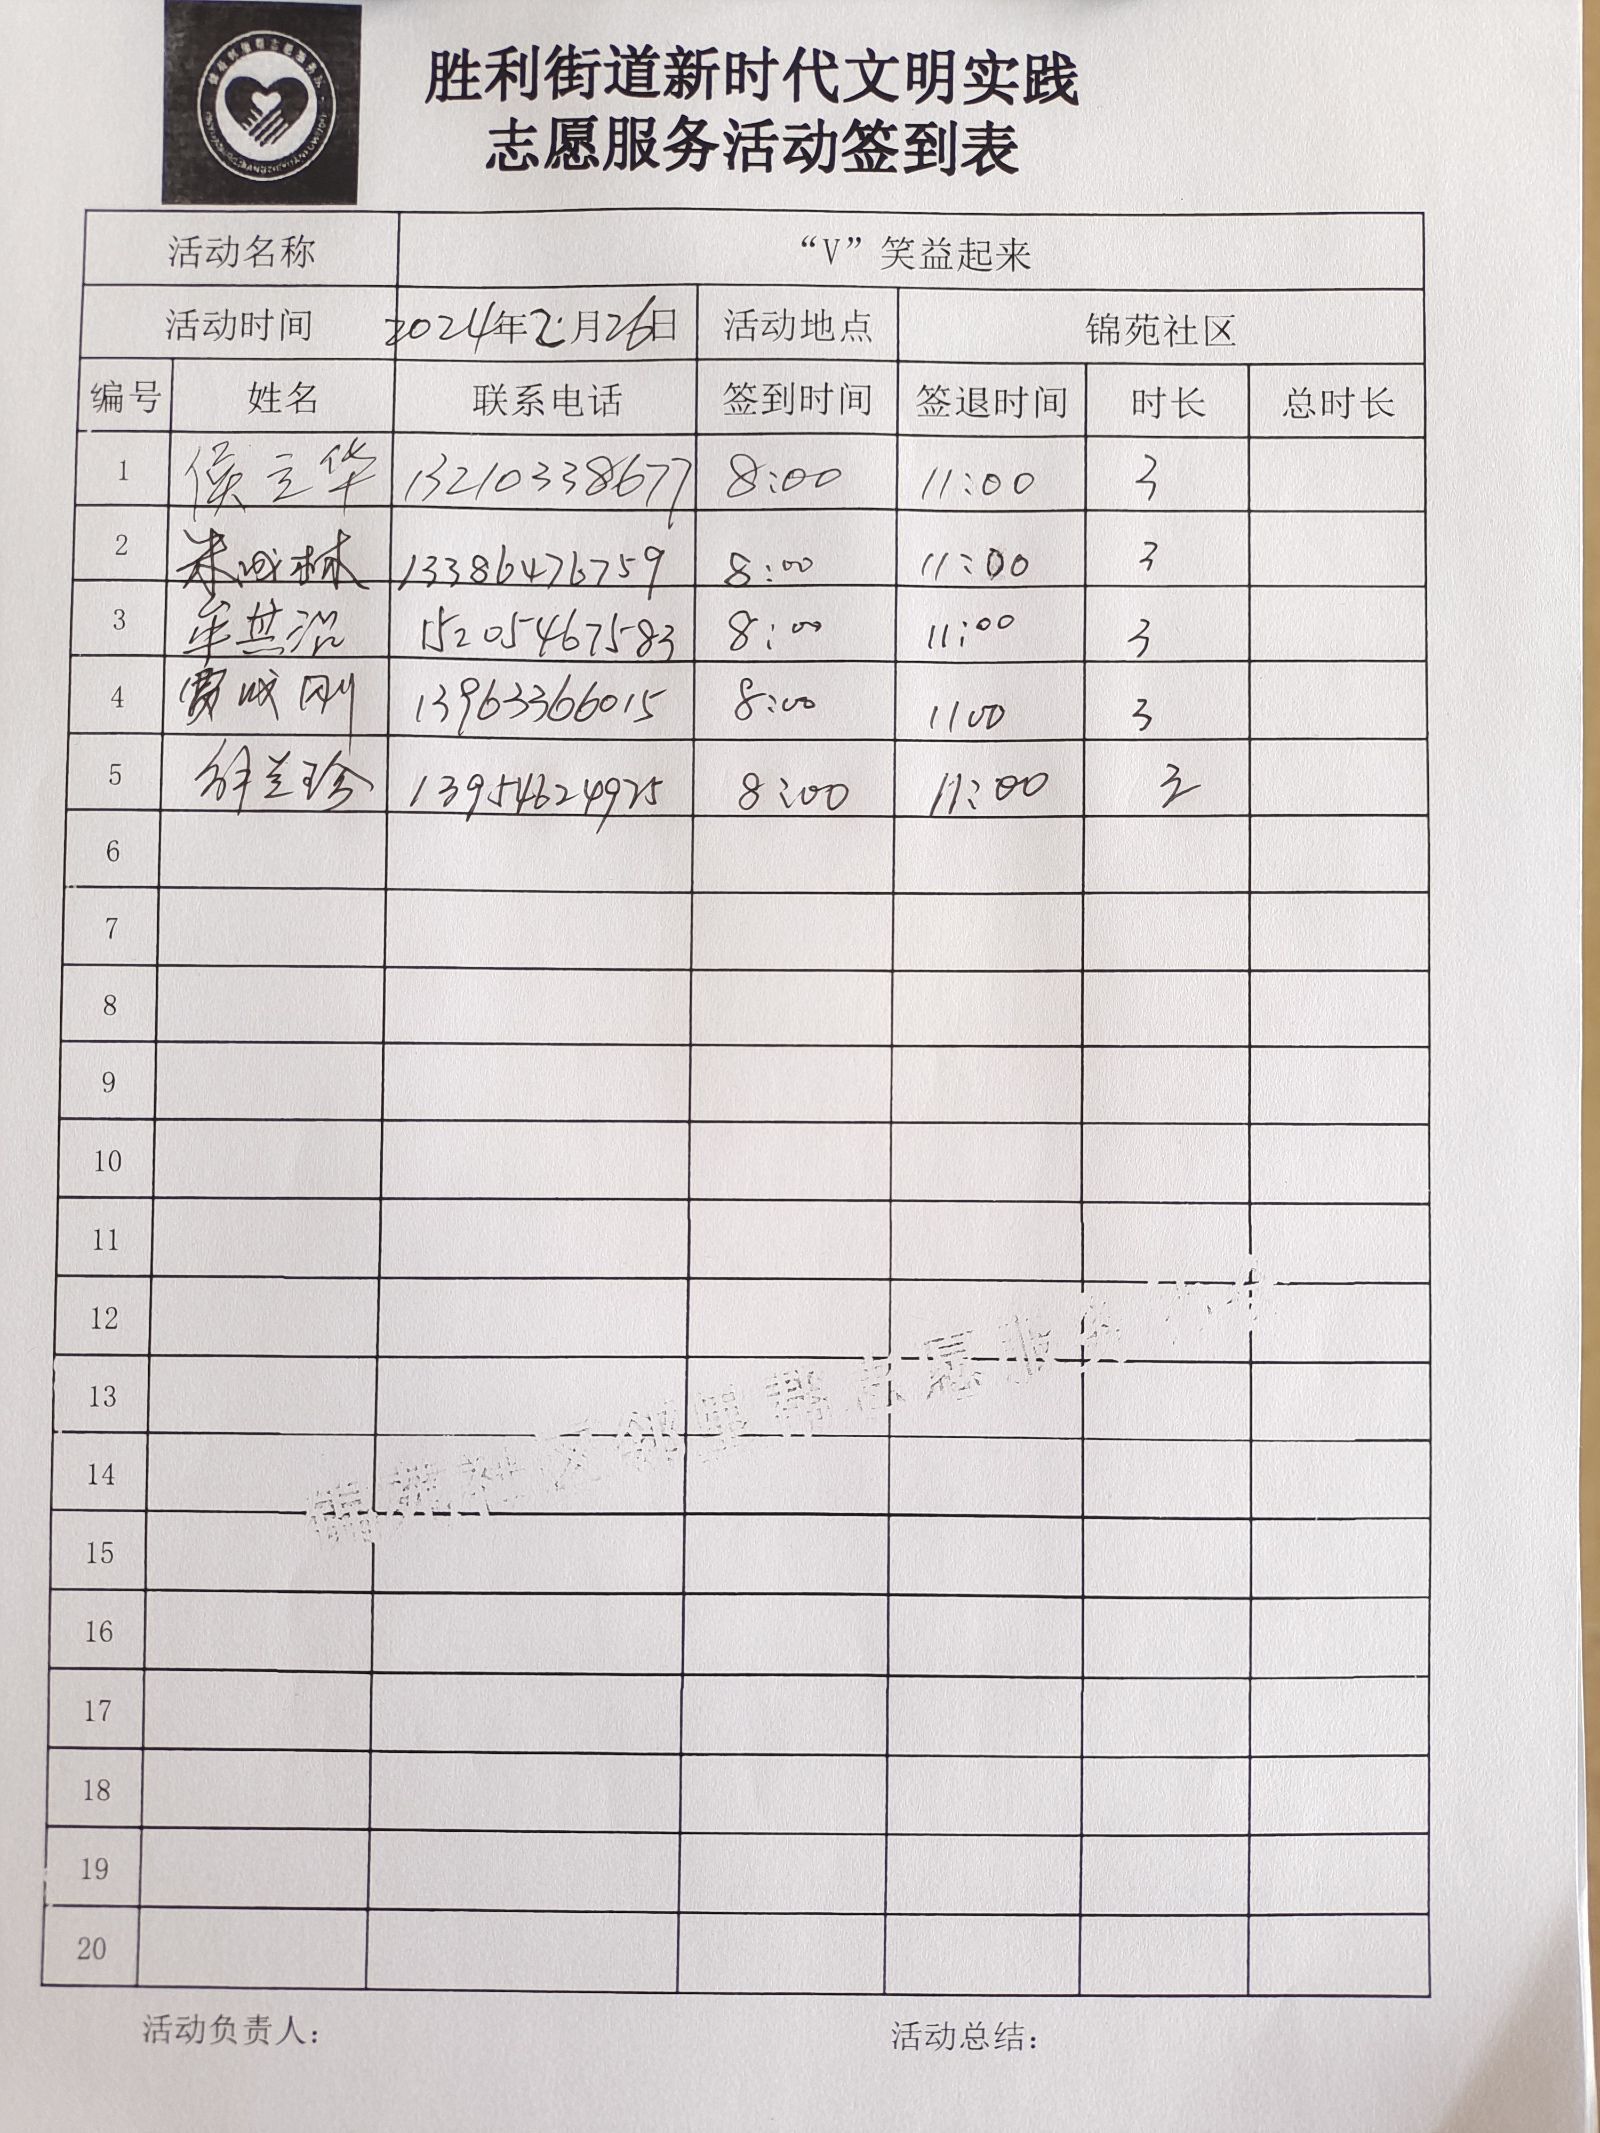 胜利街道新时代文明实践
志愿服务活动签到表
活动名称 “V”笑益起来
活动时间 2024年2月26日 活动地点 锦苑社区
编号 姓名 联系电话 签到时间 签退时间 时长 总时长
1 侯立华 13210338677 8:00 11:00 3
2 朱成林 13386476759 8:00 11:00 3
3 牟其沼 15205467583 8:00 11:00 3
4 贾成刚 13963366015 8:00 1100 3
5 徐兰珍 13954624925 8:00 11:00 3
6
7
8
9
10
11
12
13
14
15
16
17
18
19
20
锦苑社区邻里帮志愿服务
活动负责人： 活动总结：